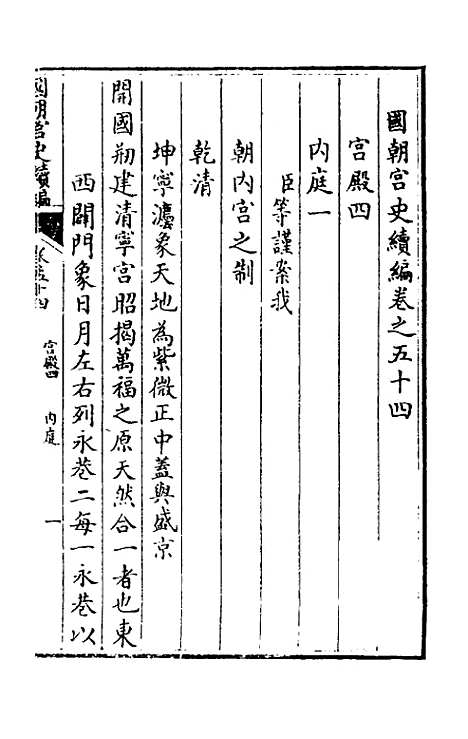 國朝宮史續編卷之五十四
宮殿四
内庭一
臣等謹案我
朝内宮之制
乾清
坤寧灋象天地為紫微正中蓋與盛京
開國剏建清寧宮昭揭萬福之原天然合一者也東
西闢門象日月左右列永巷二每一永巷以
國朝宮史續編
宮殿四 内庭 一